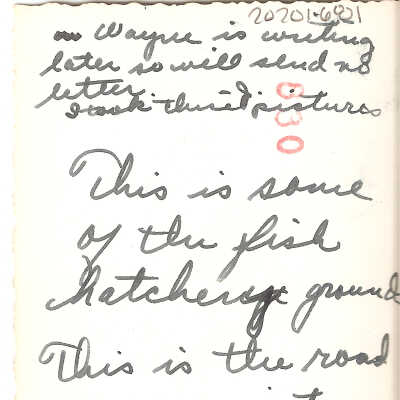 20201-6921
Wayne is writing
later so will send no
letter
I took these pictures
030
This is some
of the fish
hatchery ground
This is the road